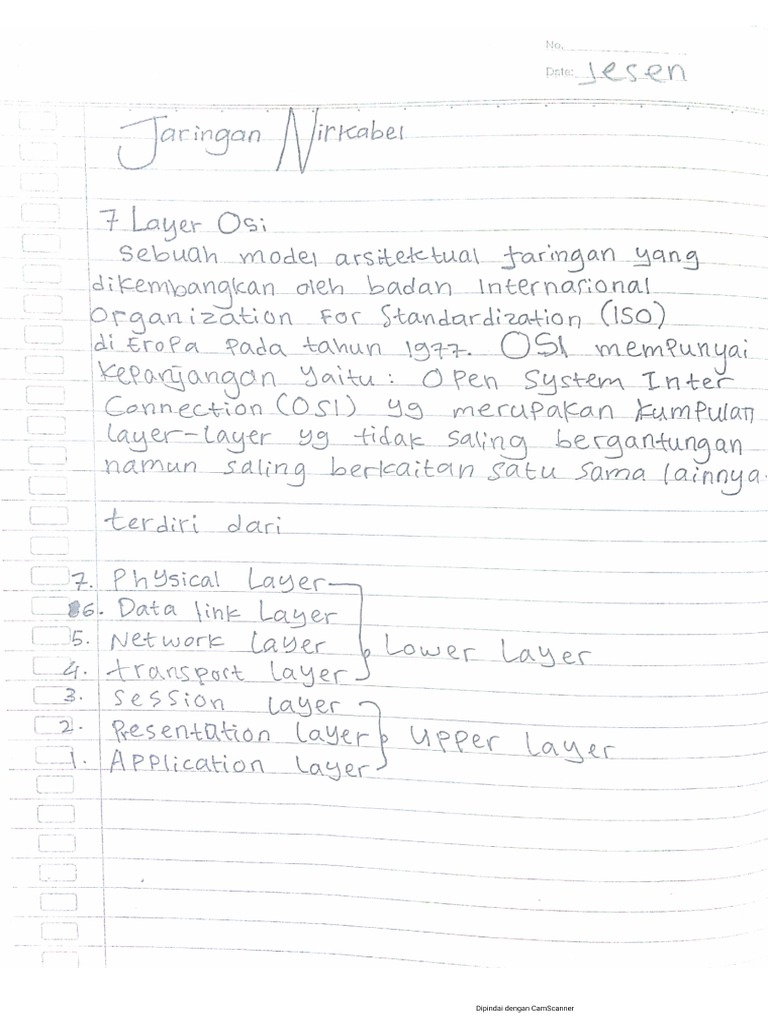 No.
Date: Jesen
Jaringan Nirkabel
7 Layer Osi
Sebuah model arsitektual Jaringan yang
dikembangkan oleh badan Internasional
Organization For Standardization (ISO)
di Eropa Pada tahun 1977. OSI mempunyai
Kepanjangan yaitu : Open System Inter
Connection (OSI) yg merupakan kumpulan
layer-layer yg tidak saling bergantungan
namun saling berkaitan satu sama lainnya.
terdiri dari
7. Physical Layer
6. Data link Layer
5. Network layer Lower Layer
4. transport layer
3. Session layer
2. Presentation layer Upper layer
1. Application layer
Dipindai dengan CamScanner